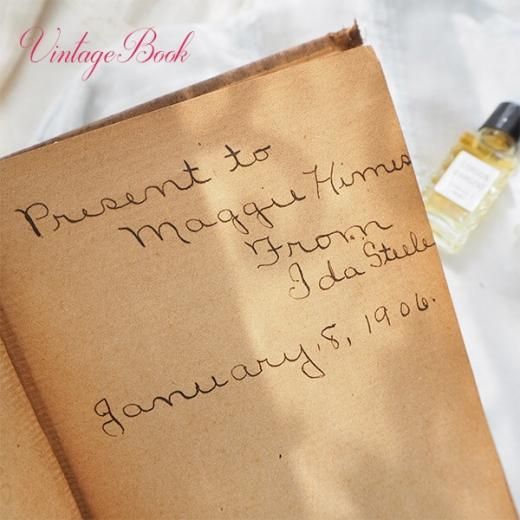 Vintage Book
Present to
Maggie Himes
From
Ida Steele
January, 8, 1906.